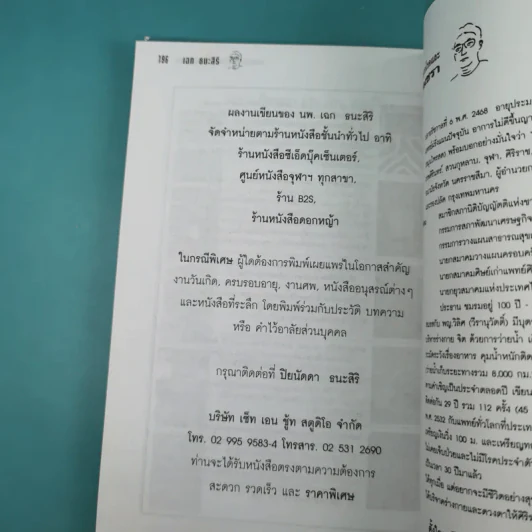 196 เฉก ธนะสิริ
ผลงานเขียนของ นพ. เฉก ธนะสิริ
จัดจำหน่ายตามร้านหนังสือชั้นนำทั่วไป อาทิ
ร้านหนังสือซีเอ็ดบุ๊คเซ็นเตอร์,
ศูนย์หนังสือจุฬาฯ ทุกสาขา,
ร้าน B2S,
ร้านหนังสือดอกหญ้า
ในกรณีพิเศษ ผู้ใดต้องการพิมพ์เผยแพร่ในโอกาสสำคัญ
งานวันเกิด, ครบรอบอายุ, งานศพ, หนังสืออนุสรณ์ต่างๆ
และหนังสือที่ระลึก โดยพิมพ์ร่วมกับประวัติ บทความ
หรือ คำไว้อาลัยส่วนบุคคล
กรุณาติดต่อที่ ปิยนัดดา ธนะสิริ
บริษัท เซ็ท เอน ชู้ท สตูดิโอ จำกัด
โทร. 02 995 9583-4 โทรสาร. 02 531 2690
ท่านจะได้รับหนังสือตรงตามความต้องการ
สะดวก รวดเร็ว และ ราคาพิเศษ
6 พ.ศ. 2468 อายุประมาณ
สวนกุหลาบ, จุฬา, ศิริราช,
นครราชสีมา, ผู้อำนวยการ
กรุงเทพมหานคร
สมาชิกสภานิติบัญญัติแห่งชาติ
กรรมการสภาพัฒนาเศรษฐกิจ
กรรมการวางแผนสาธารณสุข
นายกสมาคมวางแผนครอบครัว
นายกสมาคมศิษย์เก่าแพทย์ศิริราช
นายกยุวสมาคมแห่งประเทศไทย
ประธาน ชมรมอยู่ 100 ปี -
ด้วยการว่ายน้ำ
คุมน้ำหนักตัว
ระยะทางรวม 8,000 กม.
29 ปี รวม 112 ครั้ง (45
พ.ศ. 2532 กับแพทย์ทั่วโลกที่ประเทศ
100 ม. และเหรียญทอง
เป็นเวลา 30 ปีมาแล้ว